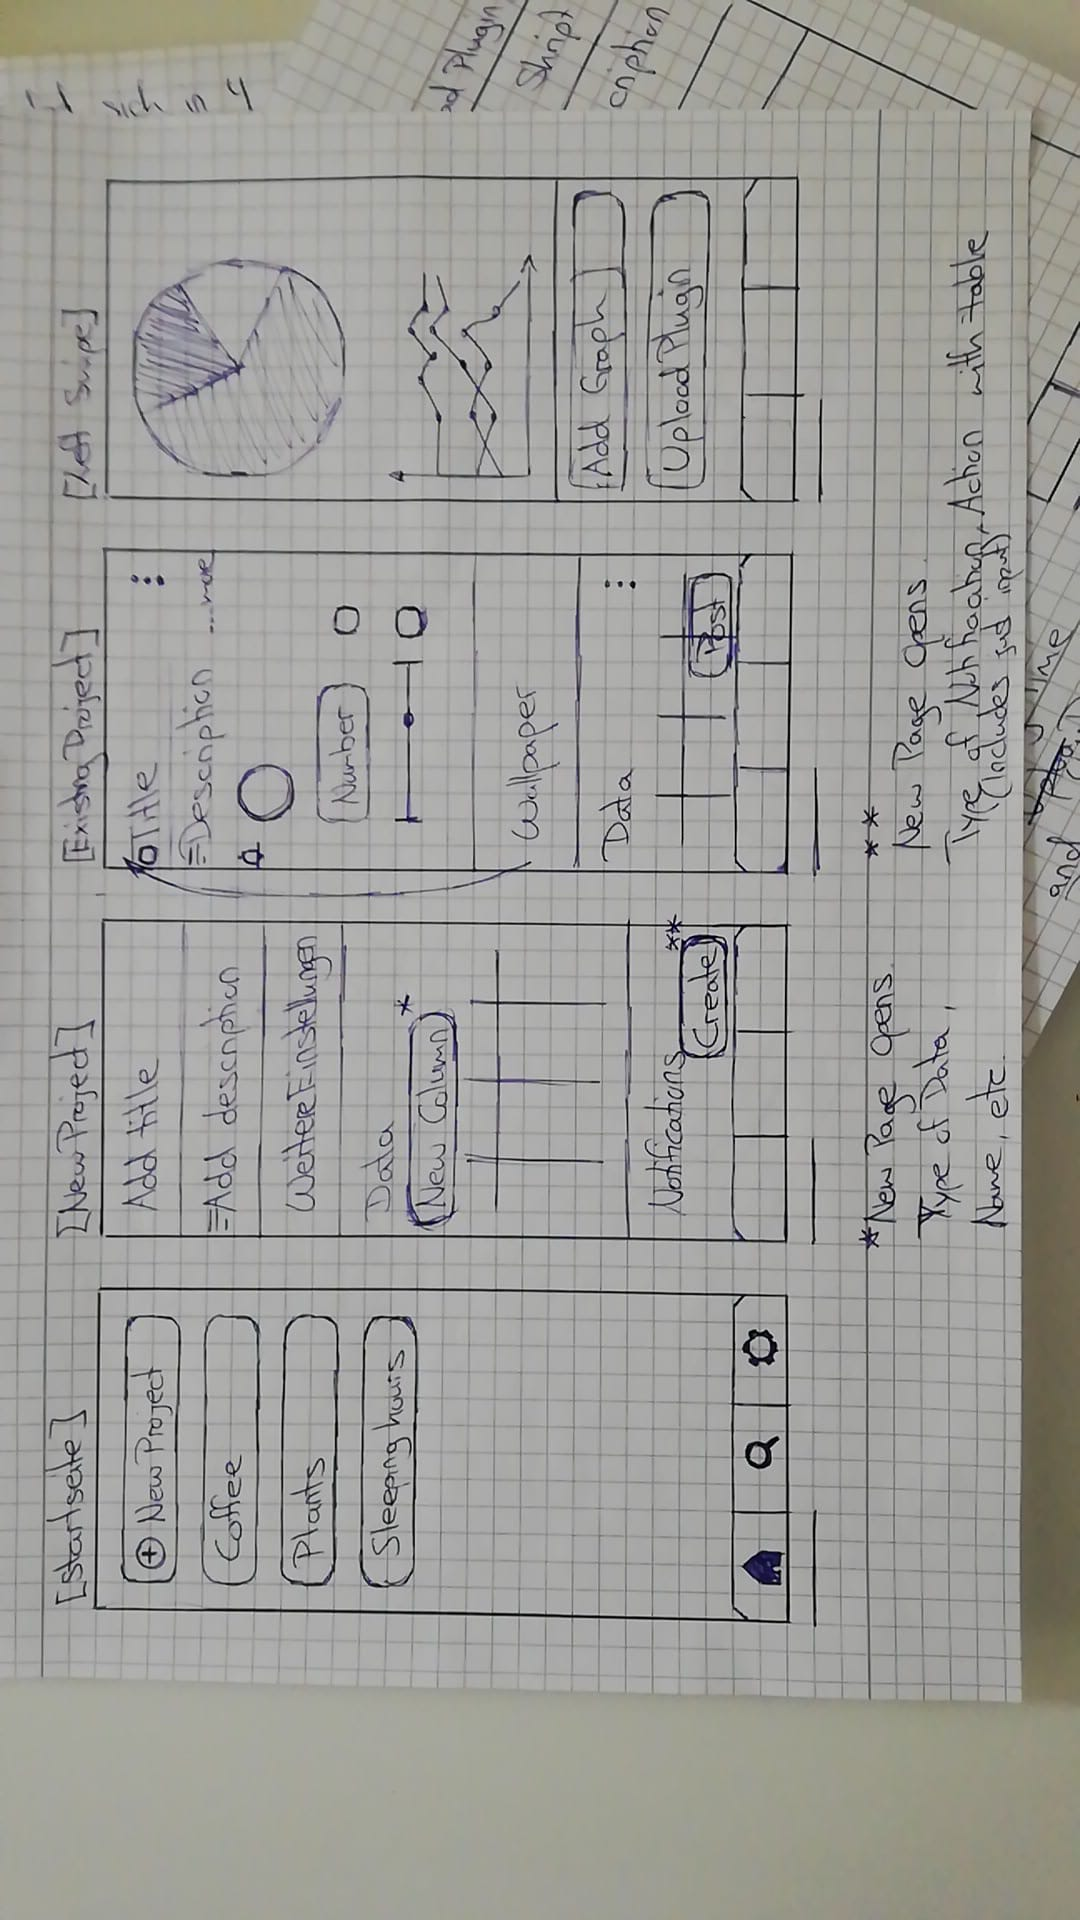 [Startseite]
New Project
Coffee
Plants
Sleeping hours
[New Project]
Add title
Add description
Weitere Einstellungen
Data
New Column *
Notifications **
Create
[Existing Project]
Title
Description ...more
Number
Wallpaper
Data
Post
[Left Swipe]
Add Graph
Upload Plugin
*New Page Opens
Type of Data,
Name, etc.
**
New Page Opens
Type of Notification, Action with table
(Includes input)
sich in 4
Plugin
Skript
and
Time